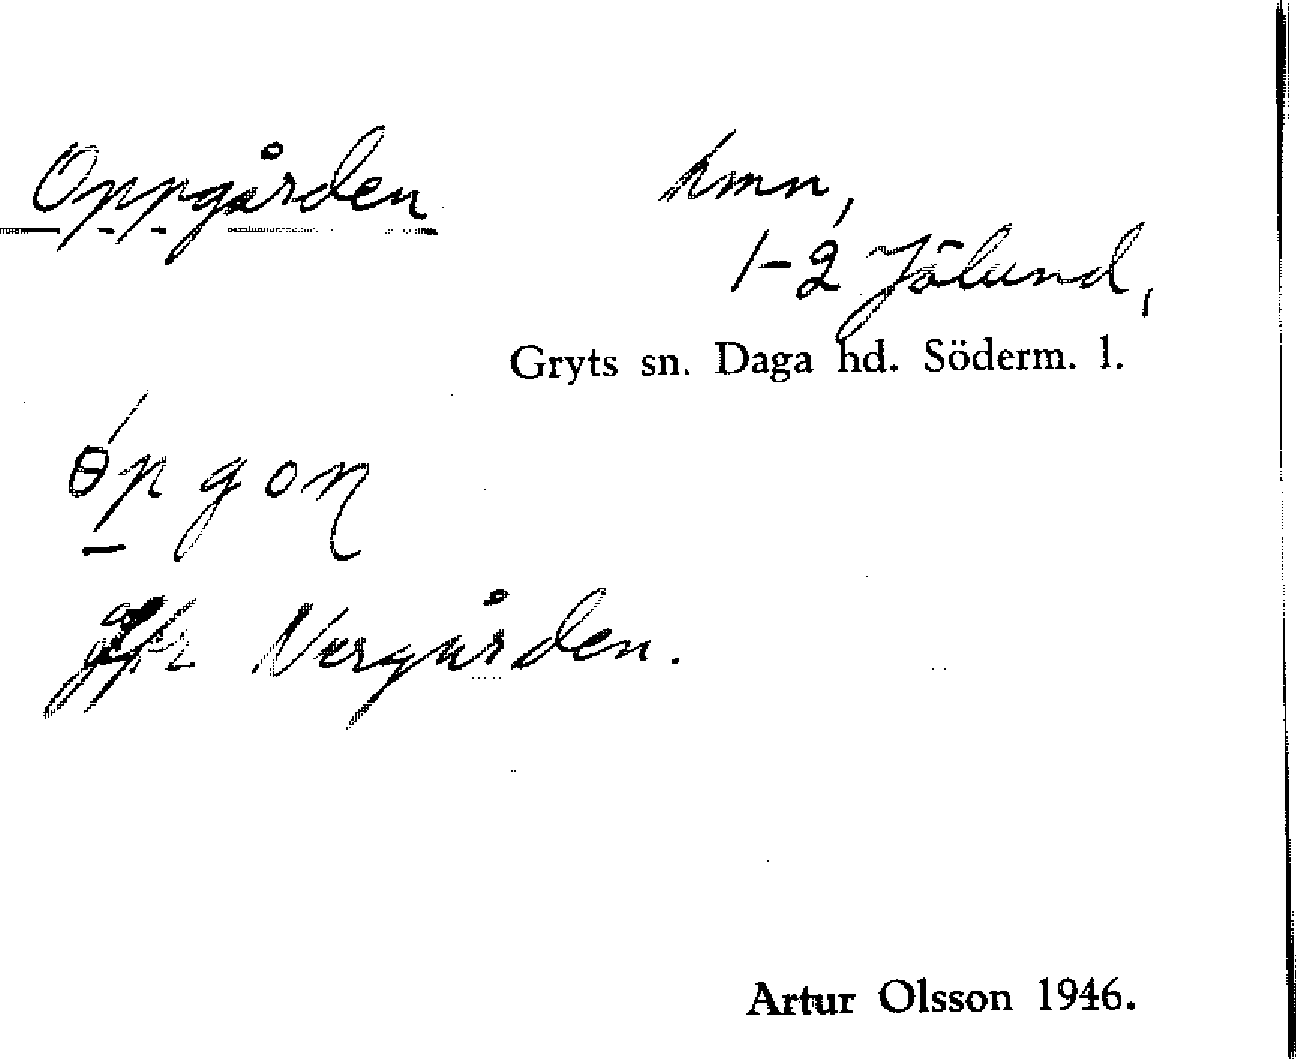 Oppgården hmn,
1-2 Jölund,
Gryts sn. Daga hd. Söderm. l.
ɵ́p gon
jfr Nergården.
Artur Olsson 1946.